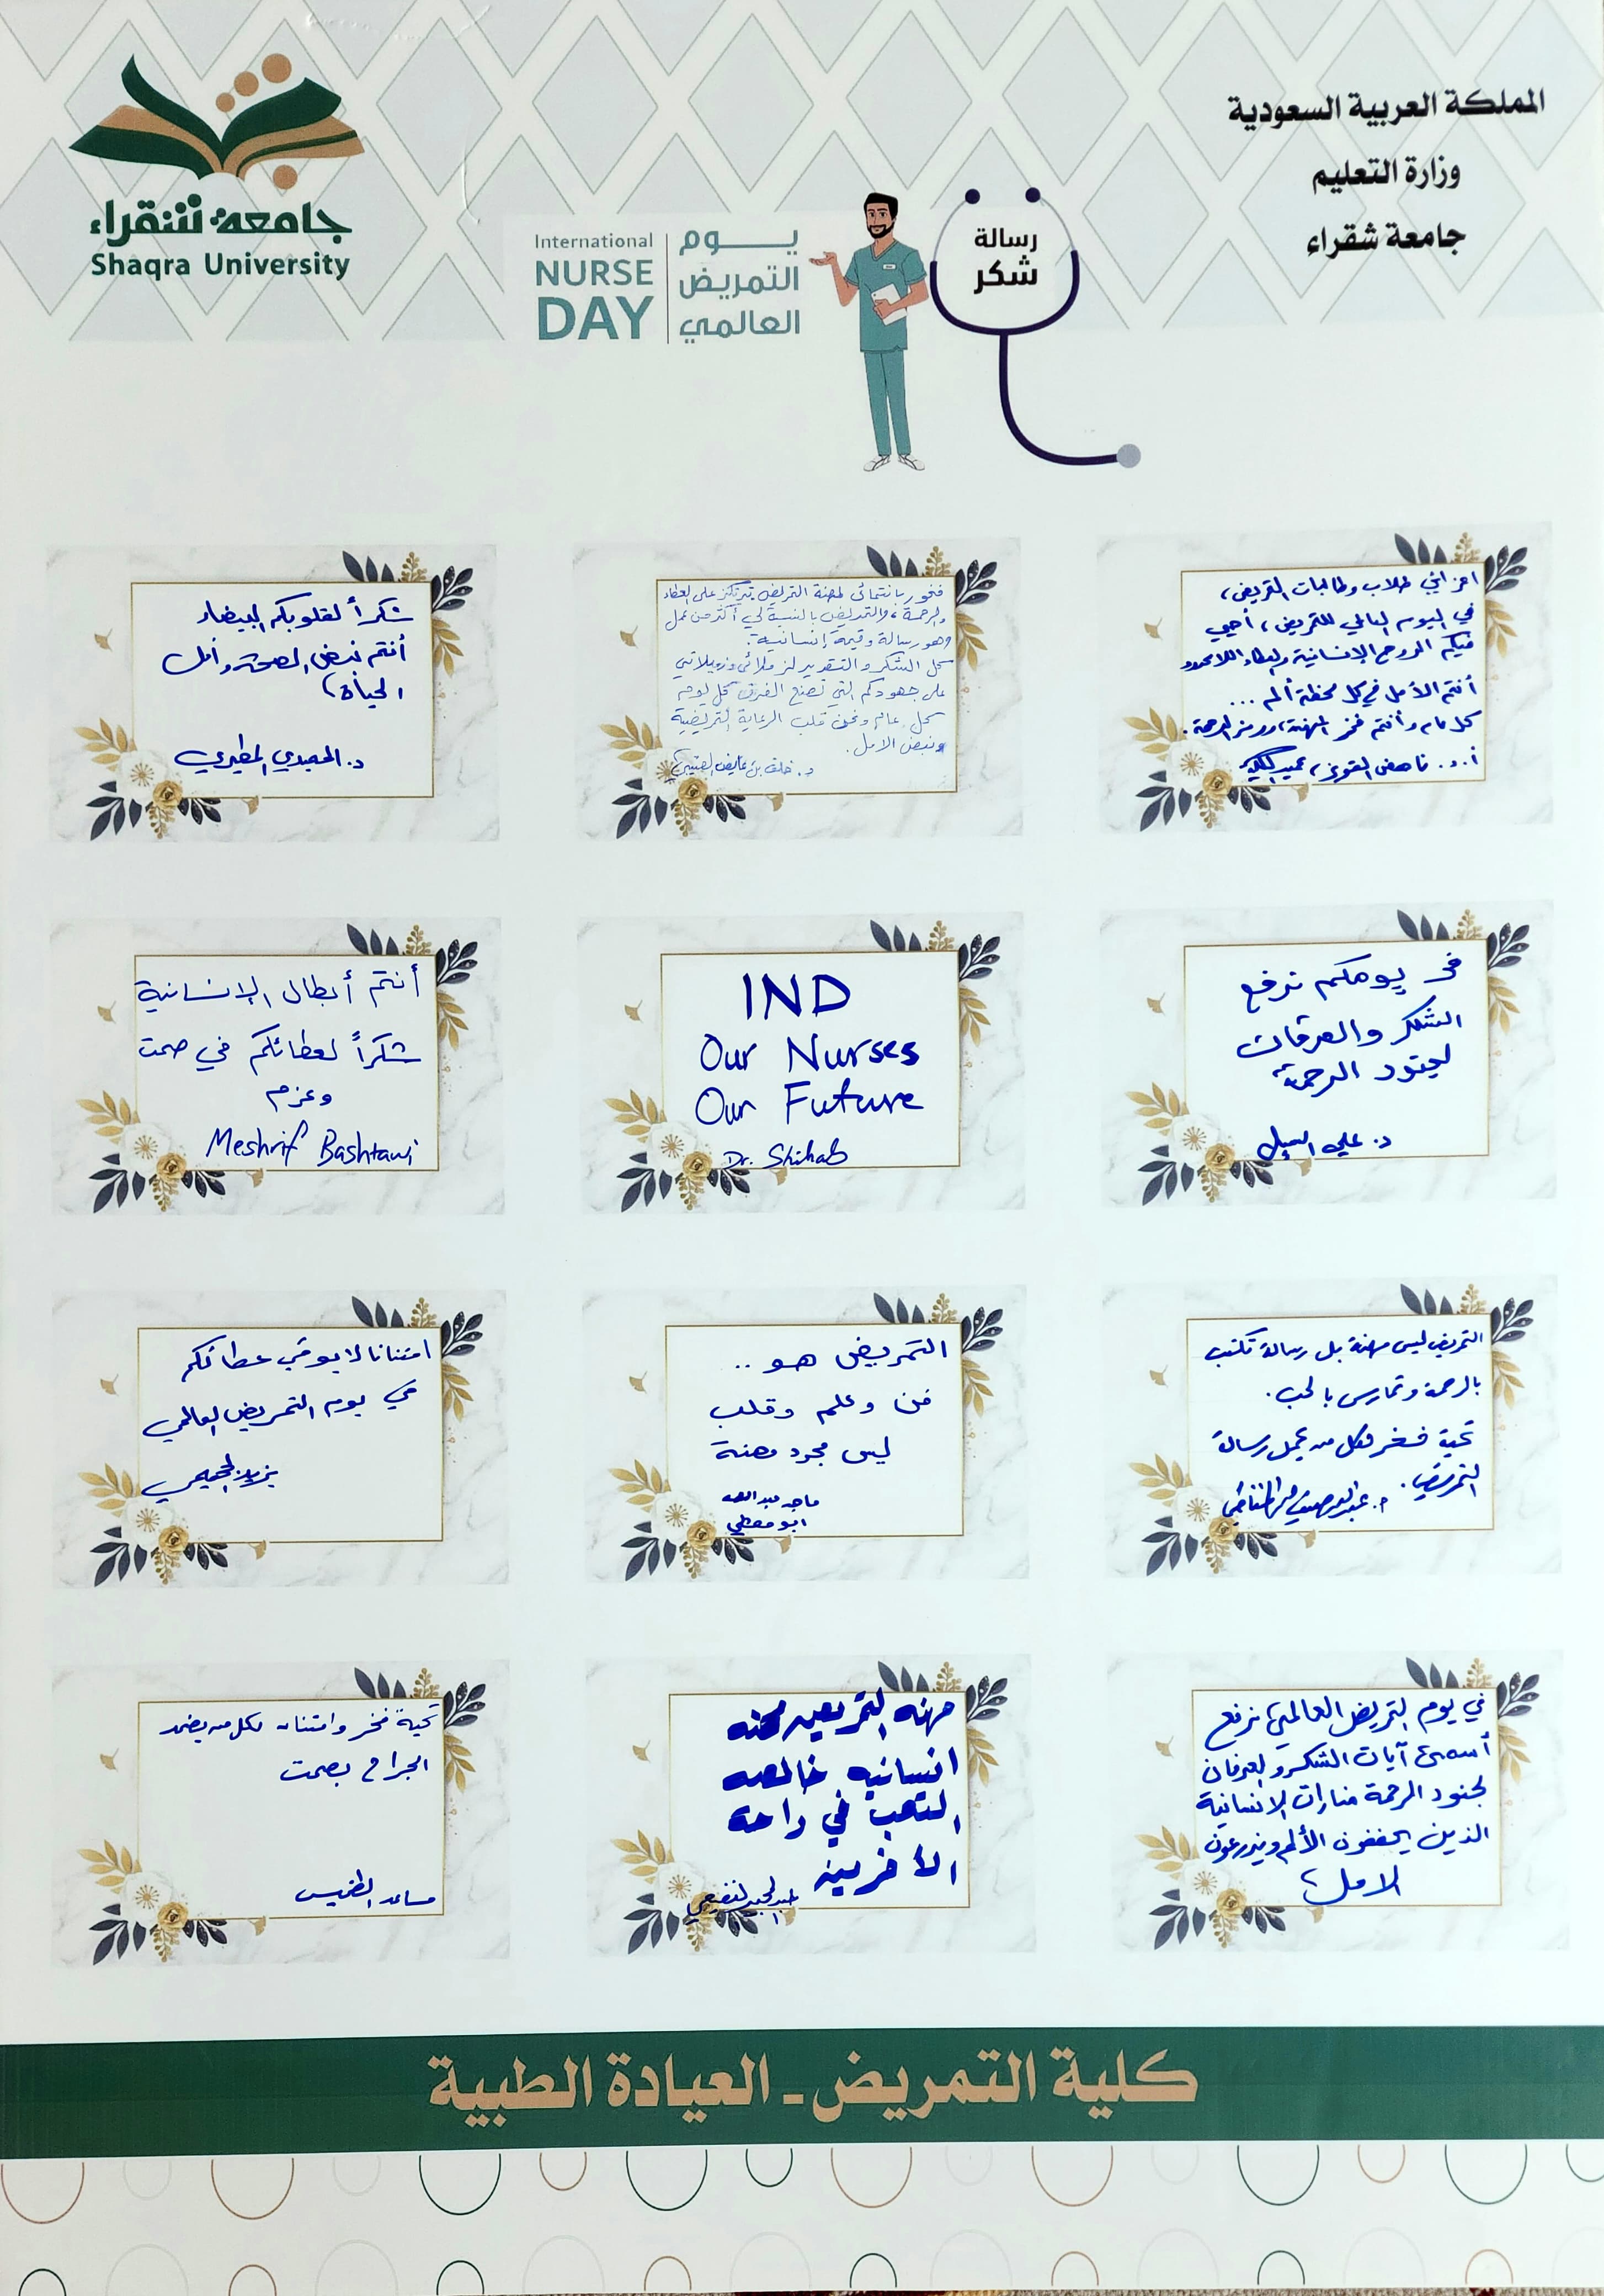 المملكة العربية السعودية
وزارة التعليم
جامعة شقراء
جامعة شقراء
Shaqra University
رسالة
شكر
يوم
التمريض
العالمي
International
NURSE
DAY
اعزائي طلاب وطالبات التمريض،
في اليوم العالمي للتمريض، أحيي
فيكم الروح الإنسانية والعطاء اللامحدود
أنتم الأمل في كل لحظة ألم ...
كل عام وأنتم فخر المهنة، ورمز الرحمة.
أ.د. ناهض القويز، عميد الكلية
فخور بانتمائي لمهنة التمريض ترتكز على العطاء
والرحمة، والتمريض بالنسبة لي أكثر من عمل
وهو رسالة وقيمة إنسانية.
كل الشكر والتقدير لزملائي وزميلاتي
على جهودكم التي تصنع الفرق كل يوم
كل عام ونحن قلب الرعاية التمريضية
ونبض الامل.
د. خلف بن عايض العتيبي
شكراً لقلوبكم البيضاء
أنتم نبض الصحة وأمل
الحياة
د. الحميدي المطيري
في يومكم نرفع
الشكر والعرفان
لجنود الرحمة
د. علي
IND
Our Nurses
Our Future
Dr. Shihab
أنتم أبطال الإنسانية
شكراً لعطائكم في صمت
وعزم
Meshrif Bashtawi
التمريض ليس مهنة بل رسالة تكتب
بالرحمة وتمارس بالحب.
تحية فخر لكل من يحمل رسالة
التمريض.
التمريض هو ..
فن وعلم وقلب
ليس مجرد مهنة
ماجد عبدالله
ابو مصطي
امتنانا لا يوفي عطائكم
في يوم التمريض العالمي
يزيد
في يوم التمريض العالمي نرفع
أسمى آيات الشكر والعرفان
لجنود الرحمة منارات الانسانية
الذين يخففون الألم ويزرعون
الامل
مهنه التمريض مهنه
انسانيه خالصه
التعب في راحه
الأخرين
تحية فخر وامتنان لكل من يضمد
الجراح بصمت
مساعد
كلية التمريض - العيادة الطبية